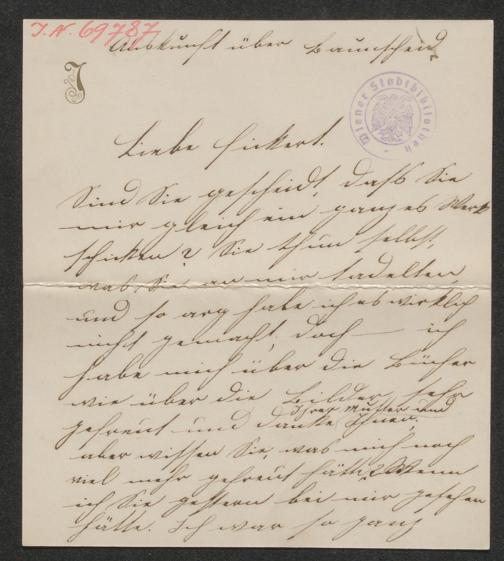 J. N. 69787
Auskunft über Baunscheid
J
Wiener Stadtbibliothek
Liebe Fickert.
Sind Sie gescheidt, daß Sie
mir gleich ein ganzes Werk
schicken? Sie thun selbst,
was Sie an mir tadelten,
und so arg habe ich es wirklich
nicht gemacht, doch – ich
habe mich über die Bücher
wie über die Bilder sehr
gefreut und danke Ihrer Mutter und Ihnen.
aber wissen Sie, was mich noch
viel mehr gefreut hätte? Wenn
ich Sie gestern bei mir gesehen
hätte. Ich war so ganz